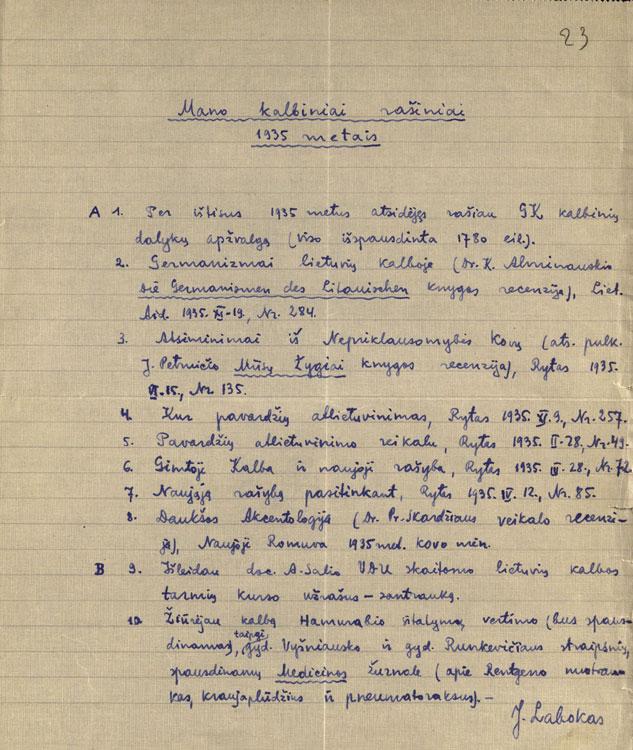 23
Mano kalbiniai rašiniai
1935 metais
A 1. Per ištisus 1935 metus atsidėjęs rašiau GK kalbinių
dalykų apžvalgą (viso išspausdinta 1780 eil.).
2. Germanizmai lietuvių kalboje (Dr. K. Alminauskio
Die Germanismen des Litauischen knygos recenzija), Liet.
Aid. 1935. XII-19, Nr. 284.
3. Atsiminimai iš Nepriklausomybės Kovų (ats. pulk.
J. Petruičio Mūsų Žygiai knygos recenzija), Rytas 1935.
VI.15., Nr. 135.
4. Kur pavardžių atlietuvinimas, Rytas 1935. XI.9., Nr. 257.
5. Pavardžių atlietuvinimo reikalu, Rytas 1935. II-28, Nr. 49.
6. Gimtoji Kalba ir naujoji rašyba, Rytas 1935. III-28., Nr. 72
7. Naująją rašybą pasitinkant, Rytas 1935. IV. 12., Nr. 85.
8. Daukšos Akcentologija (Dr. Pr. Skardžiaus veikalo recenzi-
ja), Naujoji Romuva 1935 met. kovo mėn.
B 9. Išleidau doc. A. Salio VDU skaitomo lietuvių kalbos
tarmių kurso užrašus – santrauką.
10. Žiūrėjau kalbą Hamurabio įstatymų vertimo (bus spaus-
dinamas), taipgi gyd. Vyšniausko ir gyd. Runkevičiaus straipsnių,
spausdinamų Medicinos žurnale (apie Rentgeno nuotrau-
kas, kraujaplūdžius ir pneumatoraksus). –
J. Labokas